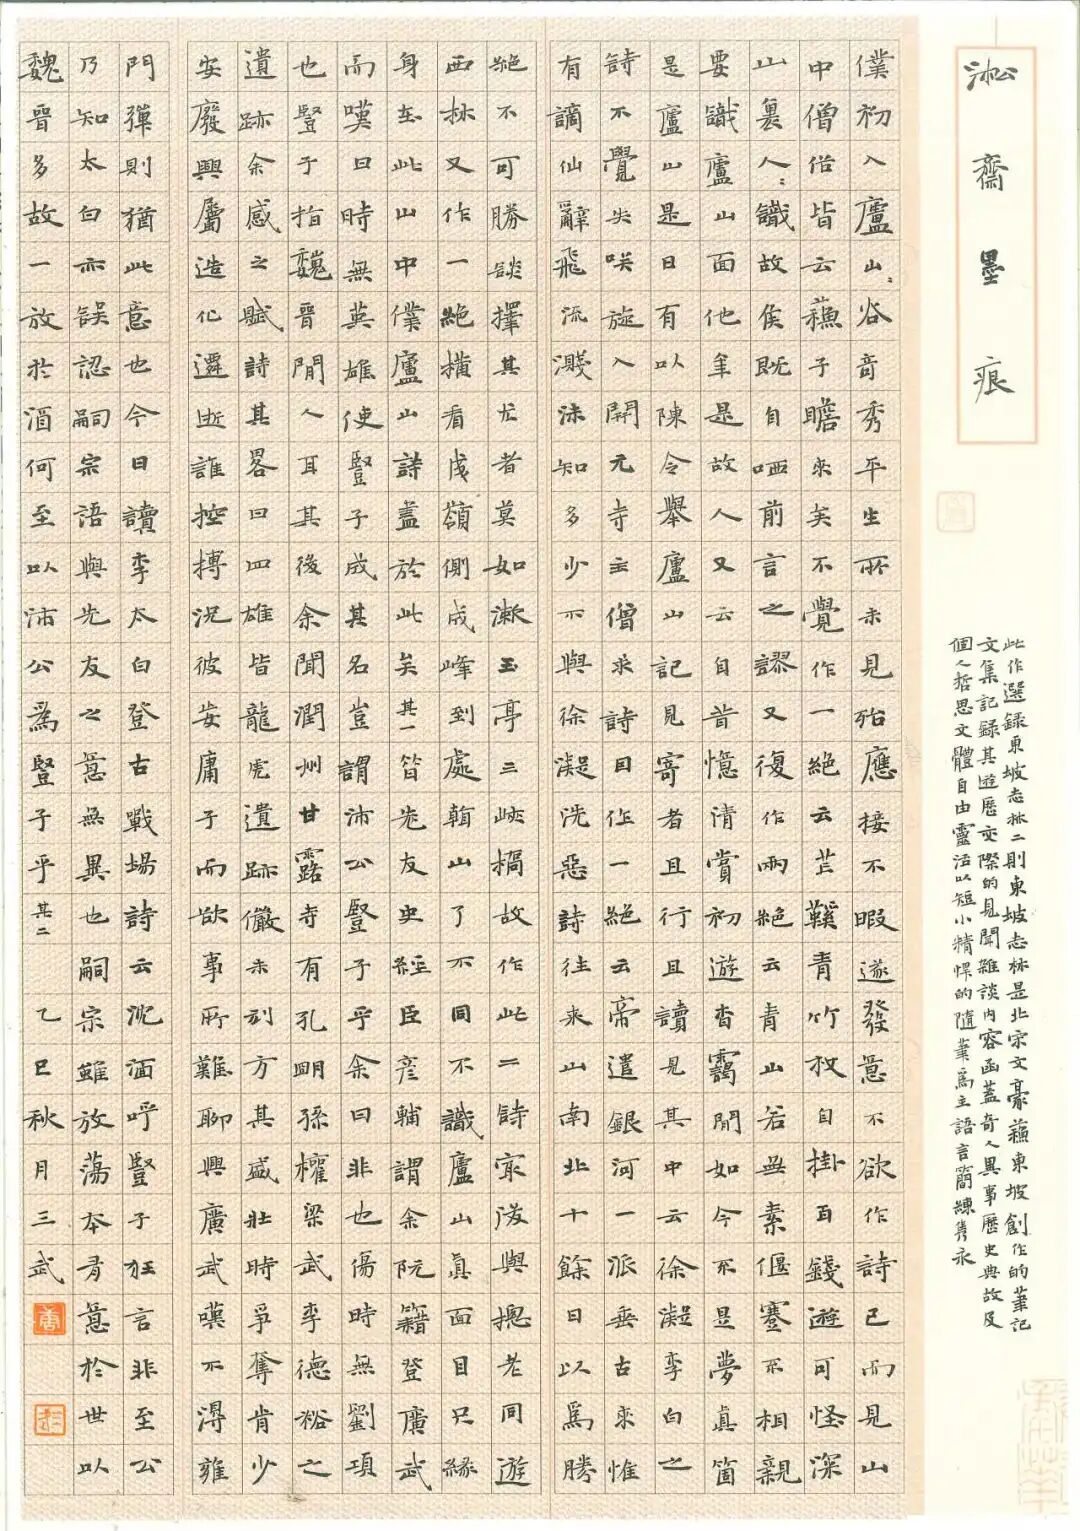 淞齋墨痕
此作選録東坡志林二則東坡志林是北宋文豪蘇東坡創作的筆記
文集記録其遊歷交際的見聞雜談內容函蓋奇人異事歷史典故及
個人哲思文體自由靈活以短小精悍的隨筆爲主語言簡練雋永
僕初入廬山:谷奇秀平生所未見殆應接不暇遂發意不欲作詩已而見山
中僧俗皆云蘇子瞻來矣不覺作一絕云芒鞵青竹杖自掛百錢遊可怪深
山裏人:識故侯既自哂前言之謬又復作兩絕云青山若無素偃蹇不相親
要識廬山面他年是故人又云自昔憶清賞初遊杳靄間如今不是夢真箇
是廬山是日有以陳令舉廬山記見寄者且行且讀見其中云徐凝李白之
詩不覺失咲旋入開元寺主僧求詩因作一絕云帝遣銀河一派垂古來惟
有謫仙辭飛流濺沫知多少不與徐凝洗惡詩往來山南北十餘日以爲勝
絕不可勝談擇其尤者莫如漱玉亭三峽橋故作此二詩最後與摠老同遊
西林又作一絕橫看成嶺側成峰到處看山了不同不識廬山真面目只緣
身在此山中僕廬山詩盡於此矣其一昔先友史經臣彦輔謂余阮籍登廣武
而嘆曰時無英雄使豎子成其名豈謂沛公豎子乎余曰非也傷時無劉項
也豎子指魏晉間人耳其後余聞潤州甘露寺有孔明孫權梁武李德裕之
遺跡余感之賦詩其畧曰四雄皆龍虎遺跡儼未刓方其盛壯時爭奪肯少
安廢興屬造化遷逝誰控摶況彼妄庸子而欲事所難聊興廣武嘆不得雍
門彈則猶此意也今日讀李太白登古戰場詩云沈湎呼豎子狂言非至公
乃知太白亦誤認嗣宗語與先友之意無異也嗣宗雖放蕩本有意於世以
魏晉多故一放於酒何至以沛公爲豎子乎其二 乙巳秋月三武